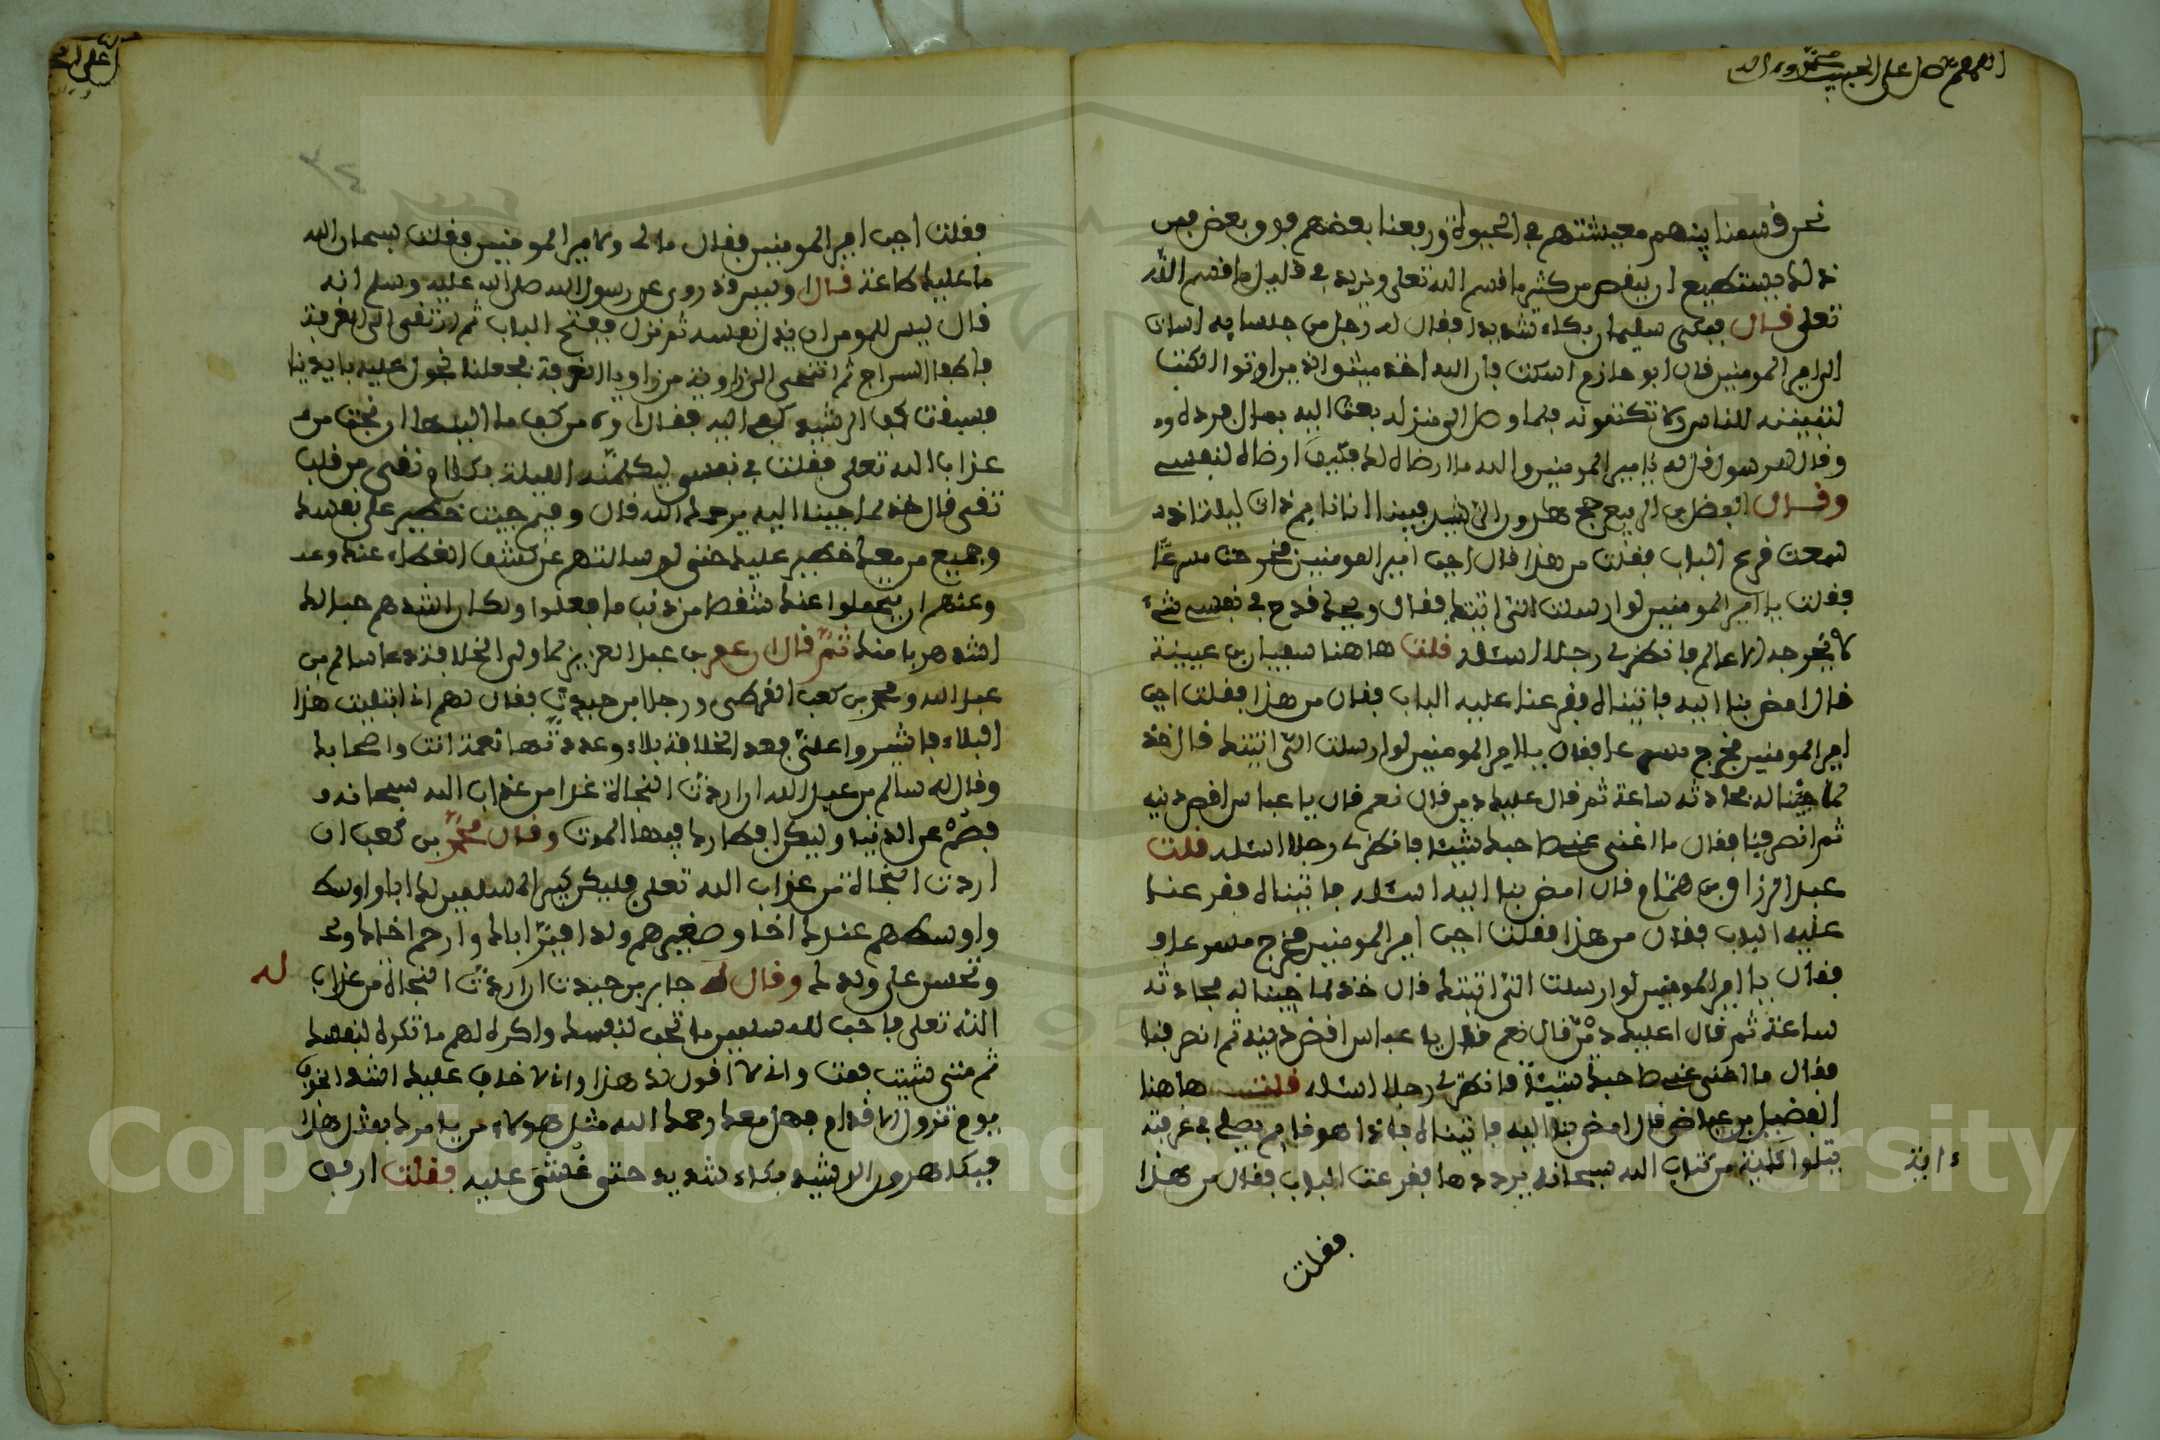 اللهم صل على الحبيب محمد وءاله
نحن قسمنا بينهم معيشتهم في الحيوة ورفعنا بعضهم فوق بعض فمن
ذلك يستطيع ان ينقص من كثير ما قسم الله تعلى ويزيد في قليل ما قسم الله
تعلى قال فبكى سليمان بكاء شديدا فقال له رجل من جلسايه اسات
الى امير المومنين قال ابو حازم اسكت فان الله اخذ ميثاق الذين اوتوا الكتب
لتبيننه للناس ولا تكتمونه فلما وصل الى منزله بعث اليه بمال فرده
وقال للرسول قل له يا امير المومنين والله ما ارضاه لك فكيف ارضاه لنفسي
وقال الفضل بن الربيع حج هرون الرشيد فبينا انا نايم ذات ليلة اذ
سمعت قرع الباب فقلت من هذا قال اجب امير المومنين فخرجت مسرعا
فقلت يا امير المومنين لو ارسلت الي اتيتك فقال ويحك قدح في نفسي شيء
لا يخرجه الا عالم فانظر لي رجلا اسئله قلت ها هنا سفيان بن عيينة
قال امض بنا اليه فاتيناه فقرعنا عليه الباب فقال من هذا فقلت اجب
امير المومنين فخرج مسرعا فقال يا امير المومنين لو ارسلت الي اتيتك قال خذ
لما جئنا له فحادثه ساعة ثم قال عليك دين قال نعم قال يا عباس اقض دينه
ثم انصرفنا فقال ما اغنى عني صاحبك شيئا فانظر لي رجلا اسئله قلت
عبد الرزاق بن همام قال امض بنا اليه اسئله فاتيناه فقرعنا
عليه الباب فقال من هذا فقلت اجب امير المومنين فخرج مسرعا و
فقال يا امير المومنين لو ارسلت الي اتيتك قال خذ لما جئنا له فحادثه
ساعة ثم قال اعليك دين قال نعم فقال يا عباس اقض دينه ثم انصرفنا
فقال ما اغنى عني صاحبك شيئا فانظر لي رجلا اسئله قلت ها هنا
الفضيل بن عياض قال امض بنا اليه فاتيناه فاذا هو قايم يصلي في غرفته
يتلوا من كتاب الله سبحانه يرددها فقرعت الباب فقال من هذا
ءاية
فقلت
فقلت اجب امير المومنين فقال ما لي ولامير المومنين فقلت سبحان الله
ما عليك طاعة قال اوليس قد روي عن رسول الله صلى الله عليه وسلم انه
قال ليس للمومن ان يذل نفسه ثم نزل ففتح الباب ثم ارتقى الى الغرفة
فاطفا السراج ثم التجى الى زاوية من زوايا الغرفة فجعلنا نجول عليه بايدينا
فسبقت كف الرشيد كفي اليه فقال اوه من كف ما الينها ان نجت من
عذاب الله تعلى فقلت في نفسي ليكلمنه الليلة بكلام نقي من قلب
تقي قال خذ لما جينا اليه يرحمك الله قال وفيم جيت حطيت على نفسك
وجميع من معك حطوا عليك حتى لو سالتهم عن كشف الغطاء عنك وعنهم
وعنهم ان يتحملوا عنك شقصا من ذنب ما فعلوا ولكان اشدهم حبا لك
اشد هربا منك ثم قال ان عمر بن عبد العزيز لما ولي الخلافة دعا سالم بن
عبد الله ومحمد بن كعب القرظي ورجا بن حيوة فقال لهم اني ابتليت بهذا
البلاء فاشيروا علي فعد الخلافة بلاء وعددتها نعمة انت واصحابك
وقال له سالم بن عبد الله ان اردت النجاة غدا من عذاب الله سبحانه و
فصم عن الدنيا وليكن افطارك فيها الموت وقال محمد بن كعب ان
اردت النجاة من عذاب الله تعلى فليكن كبير المسلمين لك ابا واوسط
واوسطهم عندك اخا وصغيرهم ولدا فبر اباك وارحم اخاك و
وتحنن على ولدك وقال له جابر بن حيوة ان اردت النجاة من عذاب
له
الله تعلى فاحب للمسلمين ما تحب لنفسك واكره لهم ما تكره لنفسك
ثم متى شيت فمت واني لا اقول لك هذا واني لاخاف عليك اشد الخوف
يوم تزول الاقدام فهل معك رحمك الله مثل هولاء من يامرك بمثل هذا
فبكا هرون الرشيد بكاء شديد حتى غشي عليه فقلت ارفق